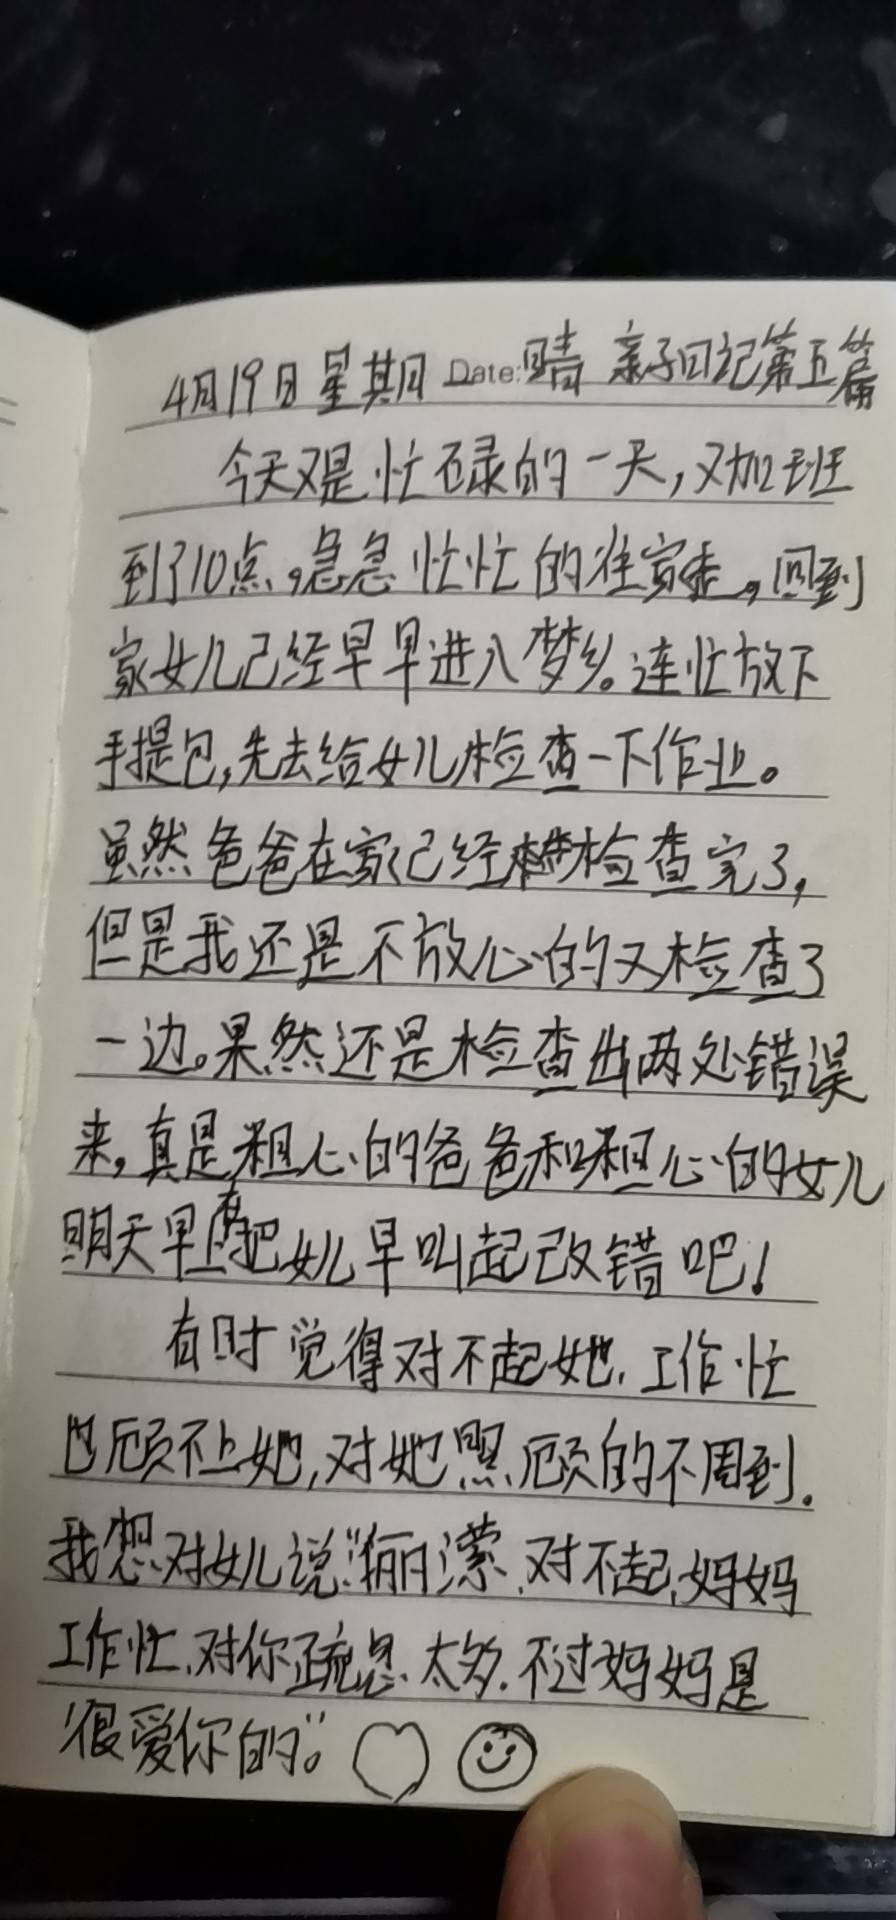 4月19日星期日 Date:晴 亲子日记第五篇
今天又是忙碌的一天,又加班
到了10点。急急忙忙的往家走。回到
家女儿已经早早进入梦乡。连忙放下
手提包,先去给女儿检查一下作业。
虽然爸爸在家已经检查完了,
但是我还是不放心的又检查了
一边。果然还是检查出两处错误
来,真是粗心的爸爸和粗心的女儿
明天早上把女儿早叫起改错吧!
有时觉得对不起她.工作忙
也顾不上她,对她照顾的不周到.
我想对女儿说:"俪潆.对不起,妈妈
工作忙.对你疏忽.太多.不过妈妈是
很爱你的"。